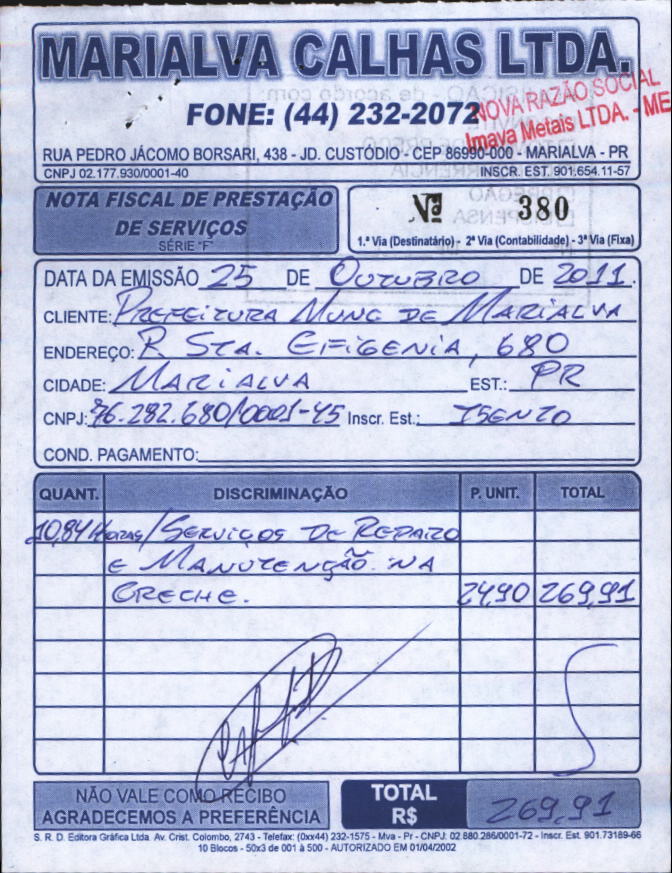 MARIALVA CALHAS LTDA.
FONE: (44) 232-2072
NOVA RAZÃO SOCIAL
Imava Metais LTDA. - ME
RUA PEDRO JÁCOMO BORSARI, 438 - JD. CUSTÓDIO - CEP 86990-000 - MARIALVA - PR
CNPJ 02.177.930/0001-40 INSCR. EST. 901.654.11-57
NOTA FISCAL DE PRESTAÇÃO
DE SERVIÇOS
SÉRIE "F"
Nº 380
1.ª Via (Destinatário) - 2ª Via (Contabilidade) - 3ª Via (Fixa)
DATA DA EMISSÃO 25 DE OUTUBRO DE 2011.
CLIENTE: PREFEITURA MUNC DE MARIALVA
ENDEREÇO: R STA. EFIGENIA, 680
CIDADE: MARIALVA EST.: PR
CNPJ: 76.282.680/0001-45 Inscr. Est.: ISENTO
COND. PAGAMENTO:
QUANT. DISCRIMINAÇÃO P. UNIT. TOTAL
10,84 Horas/SERVIÇOS DE REPARO
E MANUTENÇÃO NA
CRECHE. 24,90 269,91
NÃO VALE COMO RECIBO
AGRADECEMOS A PREFERÊNCIA
TOTAL
R$ 269,91
S. R. D. Editora Gráfica Ltda. Av. Crist. Colombo, 2743 - Telefax: (0xx44) 232-1575 - Mva - Pr - CNPJ: 02.880.286/0001-72 - Inscr. Est. 901.73189-66
10 Blocos - 50x3 de 001 à 500 - AUTORIZADO EM 01/04/2002